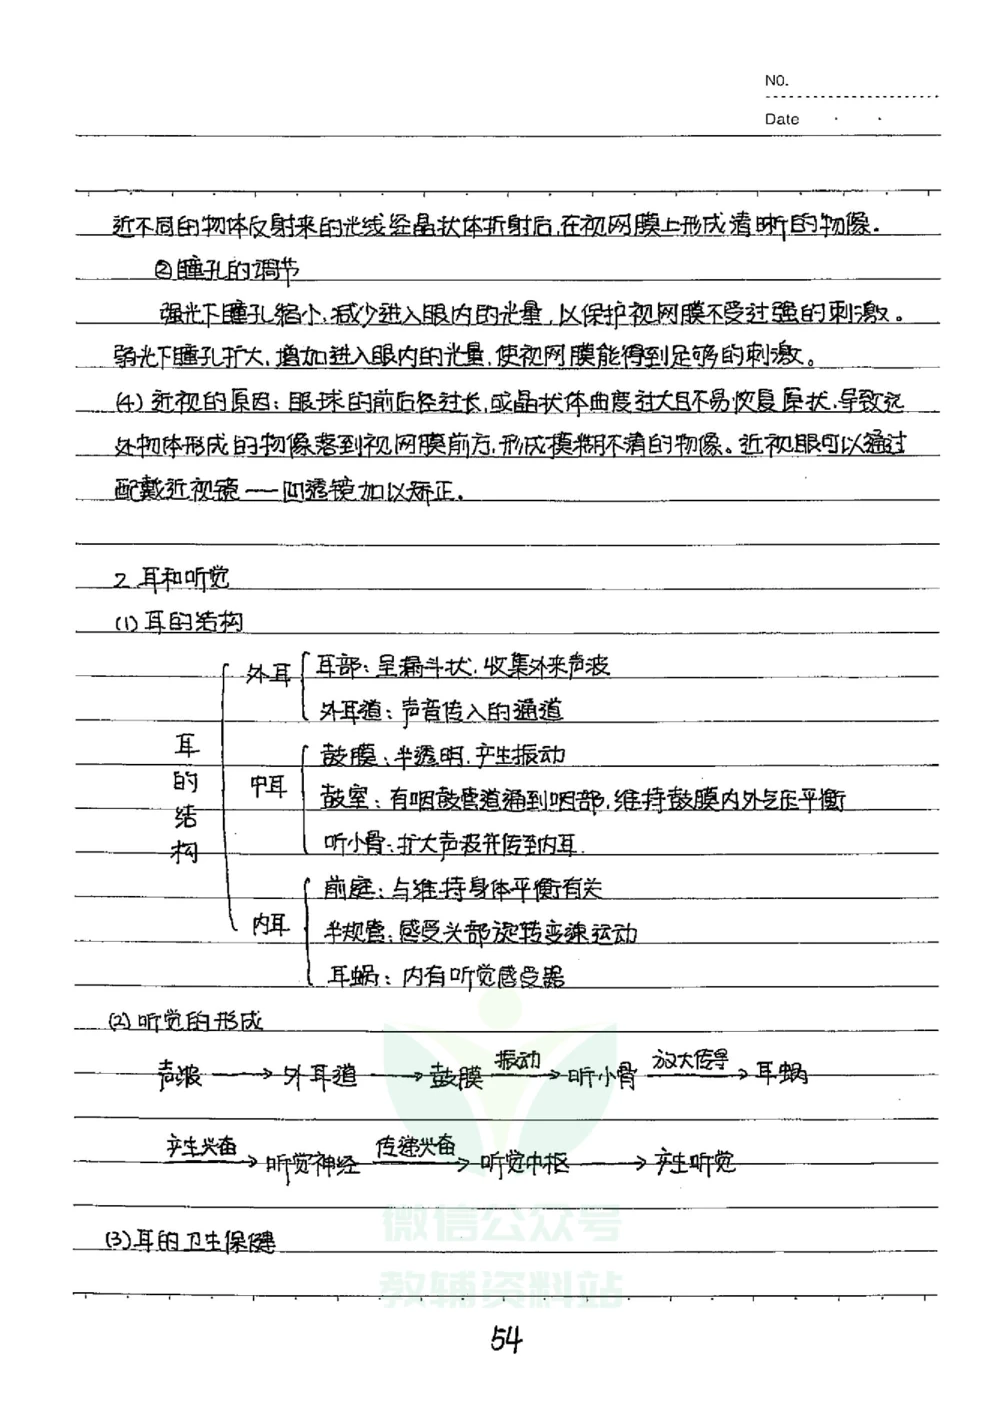 NO.
Date
近不同的物体反射来的光线经晶状体折射后,在视网膜上形成清晰的物像。
②瞳孔的调节
强光下瞳孔缩小,减少进入眼内的光量,以保护视网膜不受过强的刺激。
弱光下瞳孔扩大,增加进入眼内的光量,使视网膜能得到足够的刺激。
(4)近视的原因:眼球的前后径过长,或晶状体曲度过大且不易恢复原状,导致远
处物体形成的物像落到视网膜前方,形成模糊不清的物像。近视眼可以通过
配戴近视镜——凹透镜加以矫正.
2 耳和听觉
(1)耳的结构
耳的结构
外耳
耳部:呈漏斗状.收集外来声波
外耳道:声音传入的通道
中耳
鼓膜:半透明.产生振动
鼓室:有咽鼓管道通到咽部,维持鼓膜内外气压平衡
听小骨:扩大声波并传到内耳.
内耳
前庭:与维持身体平衡有关
半规管:感受头部旋转变速运动
耳蜗:内有听觉感受器
(2)听觉的形成
声波→外耳道→鼓膜 振动→听小骨 放大传导→耳蜗
产生兴奋→听觉神经 传递兴奋→听觉中枢→产生听觉
(3)耳的卫生保健
微信公众号
教辅资料站
54